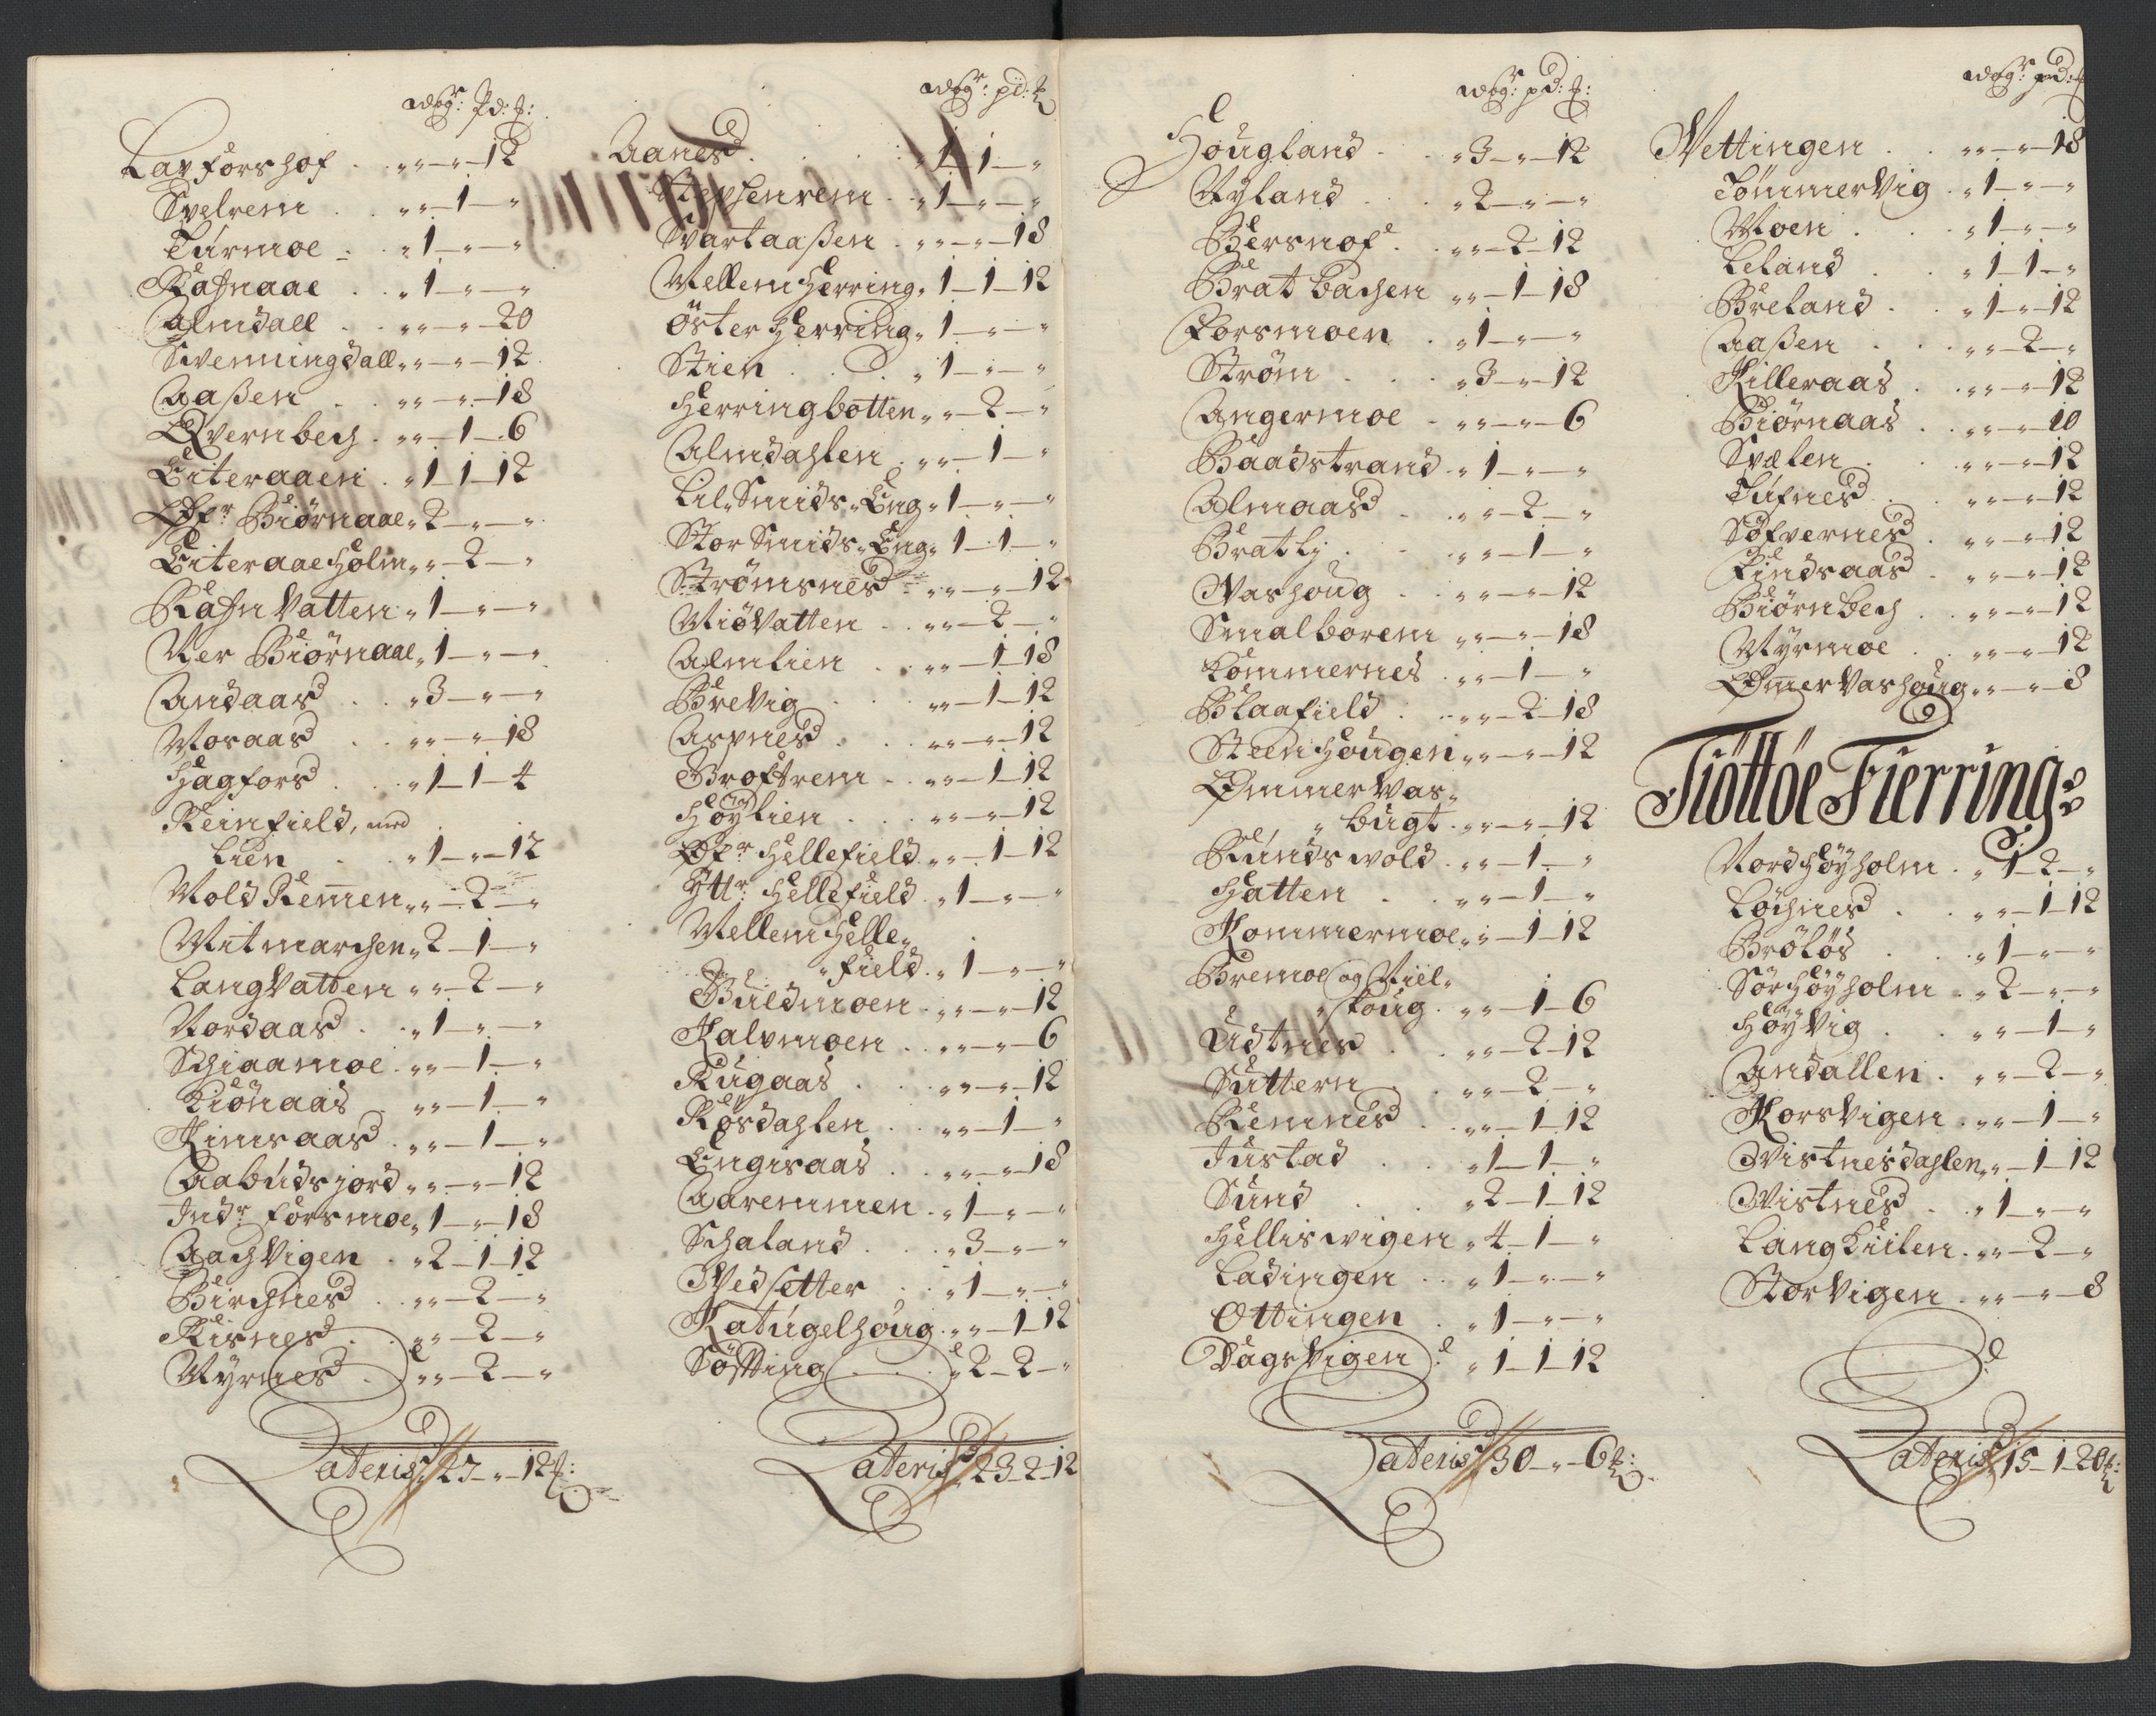 wogr: Pd: ℔:
Lavforshof . „ „ – „ – 12
Svelrem . „ „ – 1 – „
Turmoe . „ 1 – „ – „
Rafnaae . „ 1 – „ – „
Almdall . „ „ – „ – 20
Svenningdall „ „ – „ – 12
Aaßen . „ „ – „ – 18
Qvernbech . „ „ – 1 – 6
Eiteraaen . „ 1 – 1 – 12
Øfr Biörnaae „ 2 – „ – „
Eiteraaeholm „ „ – 2 – „
Rafnvatten „ 1 – „ – „
Ner Biörnaae „ 1 – „ – „
Andaas . „ 3 – „ – „
Mosaas . „ „ – „ – 18
Hagfors . „ 1 – 1 – 4
Reinfield, med
Lien . „ 1 – „ – 12
Mold Remen „ „ – 2 – „
Mitmarchen „ 2 – 1 – „
Langvatten „ „ – 2 – „
Nordaas . „ 1 – „ – „
Schiaamoe . „ „ – 1 – „
Kiönaas „ „ – 1 – „
Kimsaas . „ „ – 1 – „
Aabudsjord „ „ – „ – 12
Indr Forsmoe „ 1 – „ – 18
Aachvigen . „ 2 – 1 – 12
Birchnes . „ „ – 2 – „
Risnes . „ „ – 2 – „
Myrnes . „ „ – 2 – „
Lateris 27 – „ – 12 ℔:
wogr: pd: ℔
Aanes . „ 1 – 1 – „
Steffenrem . „ 1 – „ – „
Svartaaßen . „ „ – „ – 18
Mellem Herring „ 1 – 1 – 12
Öster Herring „ 1 – „ – „
Stien . „ 1 – „ – „
Herringbotten „ „ – 2 – „
Almdahlen . „ „ – 1 – „
Lil Smids Eng „ 1 – „ – „
Stor Smids Eng „ 1 – 1 – „
Strömsnes „ „ – „ – 12
Miövatten . „ „ – 2 – „
Almlien . „ „ – 1 – 18
Brevig . „ „ – 1 – 12
Aspnes . „ „ – „ – 12
Broftrem . „ „ – 1 – 12
Höylien . „ „ – „ – 12
Øfr Hellefield „ „ – 1 – 12
Yttr Hellefield . „ 1 – „ – „
Mellem Helle„
„field . „ 1 – „ – „
Buldmoen . „ „ – „ – 12
Kalvmoen . „ „ – „ – 6
Rugaas . „ „ – „ – 12
Rösdahlen . „ „ – 1 – „
Engisaas . „ „ – „ – 18
Aaremmen . „ 1 – „ – „
Schaland . „ 3 – „ – „
Vedsetter . „ 1 – „ – „
Katugelhoug . „ „ – 1 – 12
Söfting . „ 2 – 2 – „
Lateris 23 – 2 – 12
wogr: pd: ℔:
Hougland . „ 3 – „ – 12
Ryland . „ 2 – „ – „
Bersnof . „ „ – 2 – 12
Bratbachen „ „ – 1 – 18
Forsmoen . „ 1 – „ – „
Ström . „ 3 – „ – 12
Angermoe . „ „ – „ – 6
Baadstrand . „ 1 – „ – „
Almaas . „ „ – 2 – „
Bratly . „ „ – 1 – „
Vashoug . „ „ – „ – 12
Smalborem „ „ – „ – 18
Tommernes . „ „ – 1 – „
Blaafield . „ „ – 2 – 18
Steenhougen „ „ – „ – 12
Ømmervas„
„bugt . „ „ – „ – 12
Rundswold . „ „ – 1 – „
Hatten . „ „ – 1 – „
Kommermoe „ „ – 1 – 12
Bremoe og Miel„
„skoug . „ „ – 1 – 6
Udtnes . „ „ – 2 – 12
Suttern . „ „ – 2 – „
Remnes . „ „ – 1 – 12
Justad . „ 1 – 1 – „
Sund . „ 2 – 1 – 12
Helliswigen „ 4 – 1 – „
Ladingen . „ 1 – „ – „
Ottingen . „ 1 – „ – „
Dagsvigen . „ 1 – 1 – 12
Lateris 30 – „ – 6 ℔:
wogr: pd: ℔
Vettingen . „ „ – „ – 18
Tömmervig . „ 1 – „ – „
Moen . „ 1 – „ – „
Leland . „ 1 – 1 – „
Breland . „ 1 – „ – 12
Aaßen . „ „ – 2 – „
Killeraas . „ „ – „ – 12
Biörnaas . „ „ – „ – 20
Svælen . „ „ – „ – 12
Tufnes . „ „ – „ – 12
Söfvernes . „ „ – „ – 12
Findsaas . „ „ – „ – 12
Biörnbech . „ „ – „ – 12
Myrmoe . „ „ – „ – 12
Ømervashoug „ „ – „ – 8
Tiöttöe Fierring:
Nordhöyholm . „ 1 – 2 – „
Löchnes . „ „ – 1 – 12
Brölös . „ 1 – „ – „
Sörhöyholm . „ 2 – „ – „
Höyvig . „ „ – 1 – „
Andallen . „ „ – 2 – „
Korsvigen . „ „ – 1 – „
Vistnesdahlen „ „ – 1 – 12
Vistnes . „ 1 – „ – „
Langkiilen . „ „ – 2 – „
Storvigen . „ „ – „ – 8
Lateris 15 – 1 – 20 ℔: